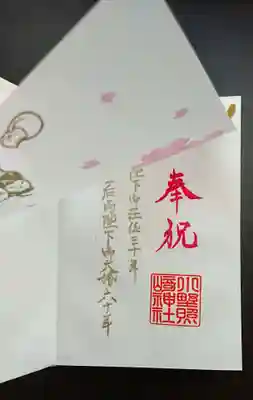 奉祝
小野照
崎神社
陛下御在位三十年
后両陛下御大婚六十年